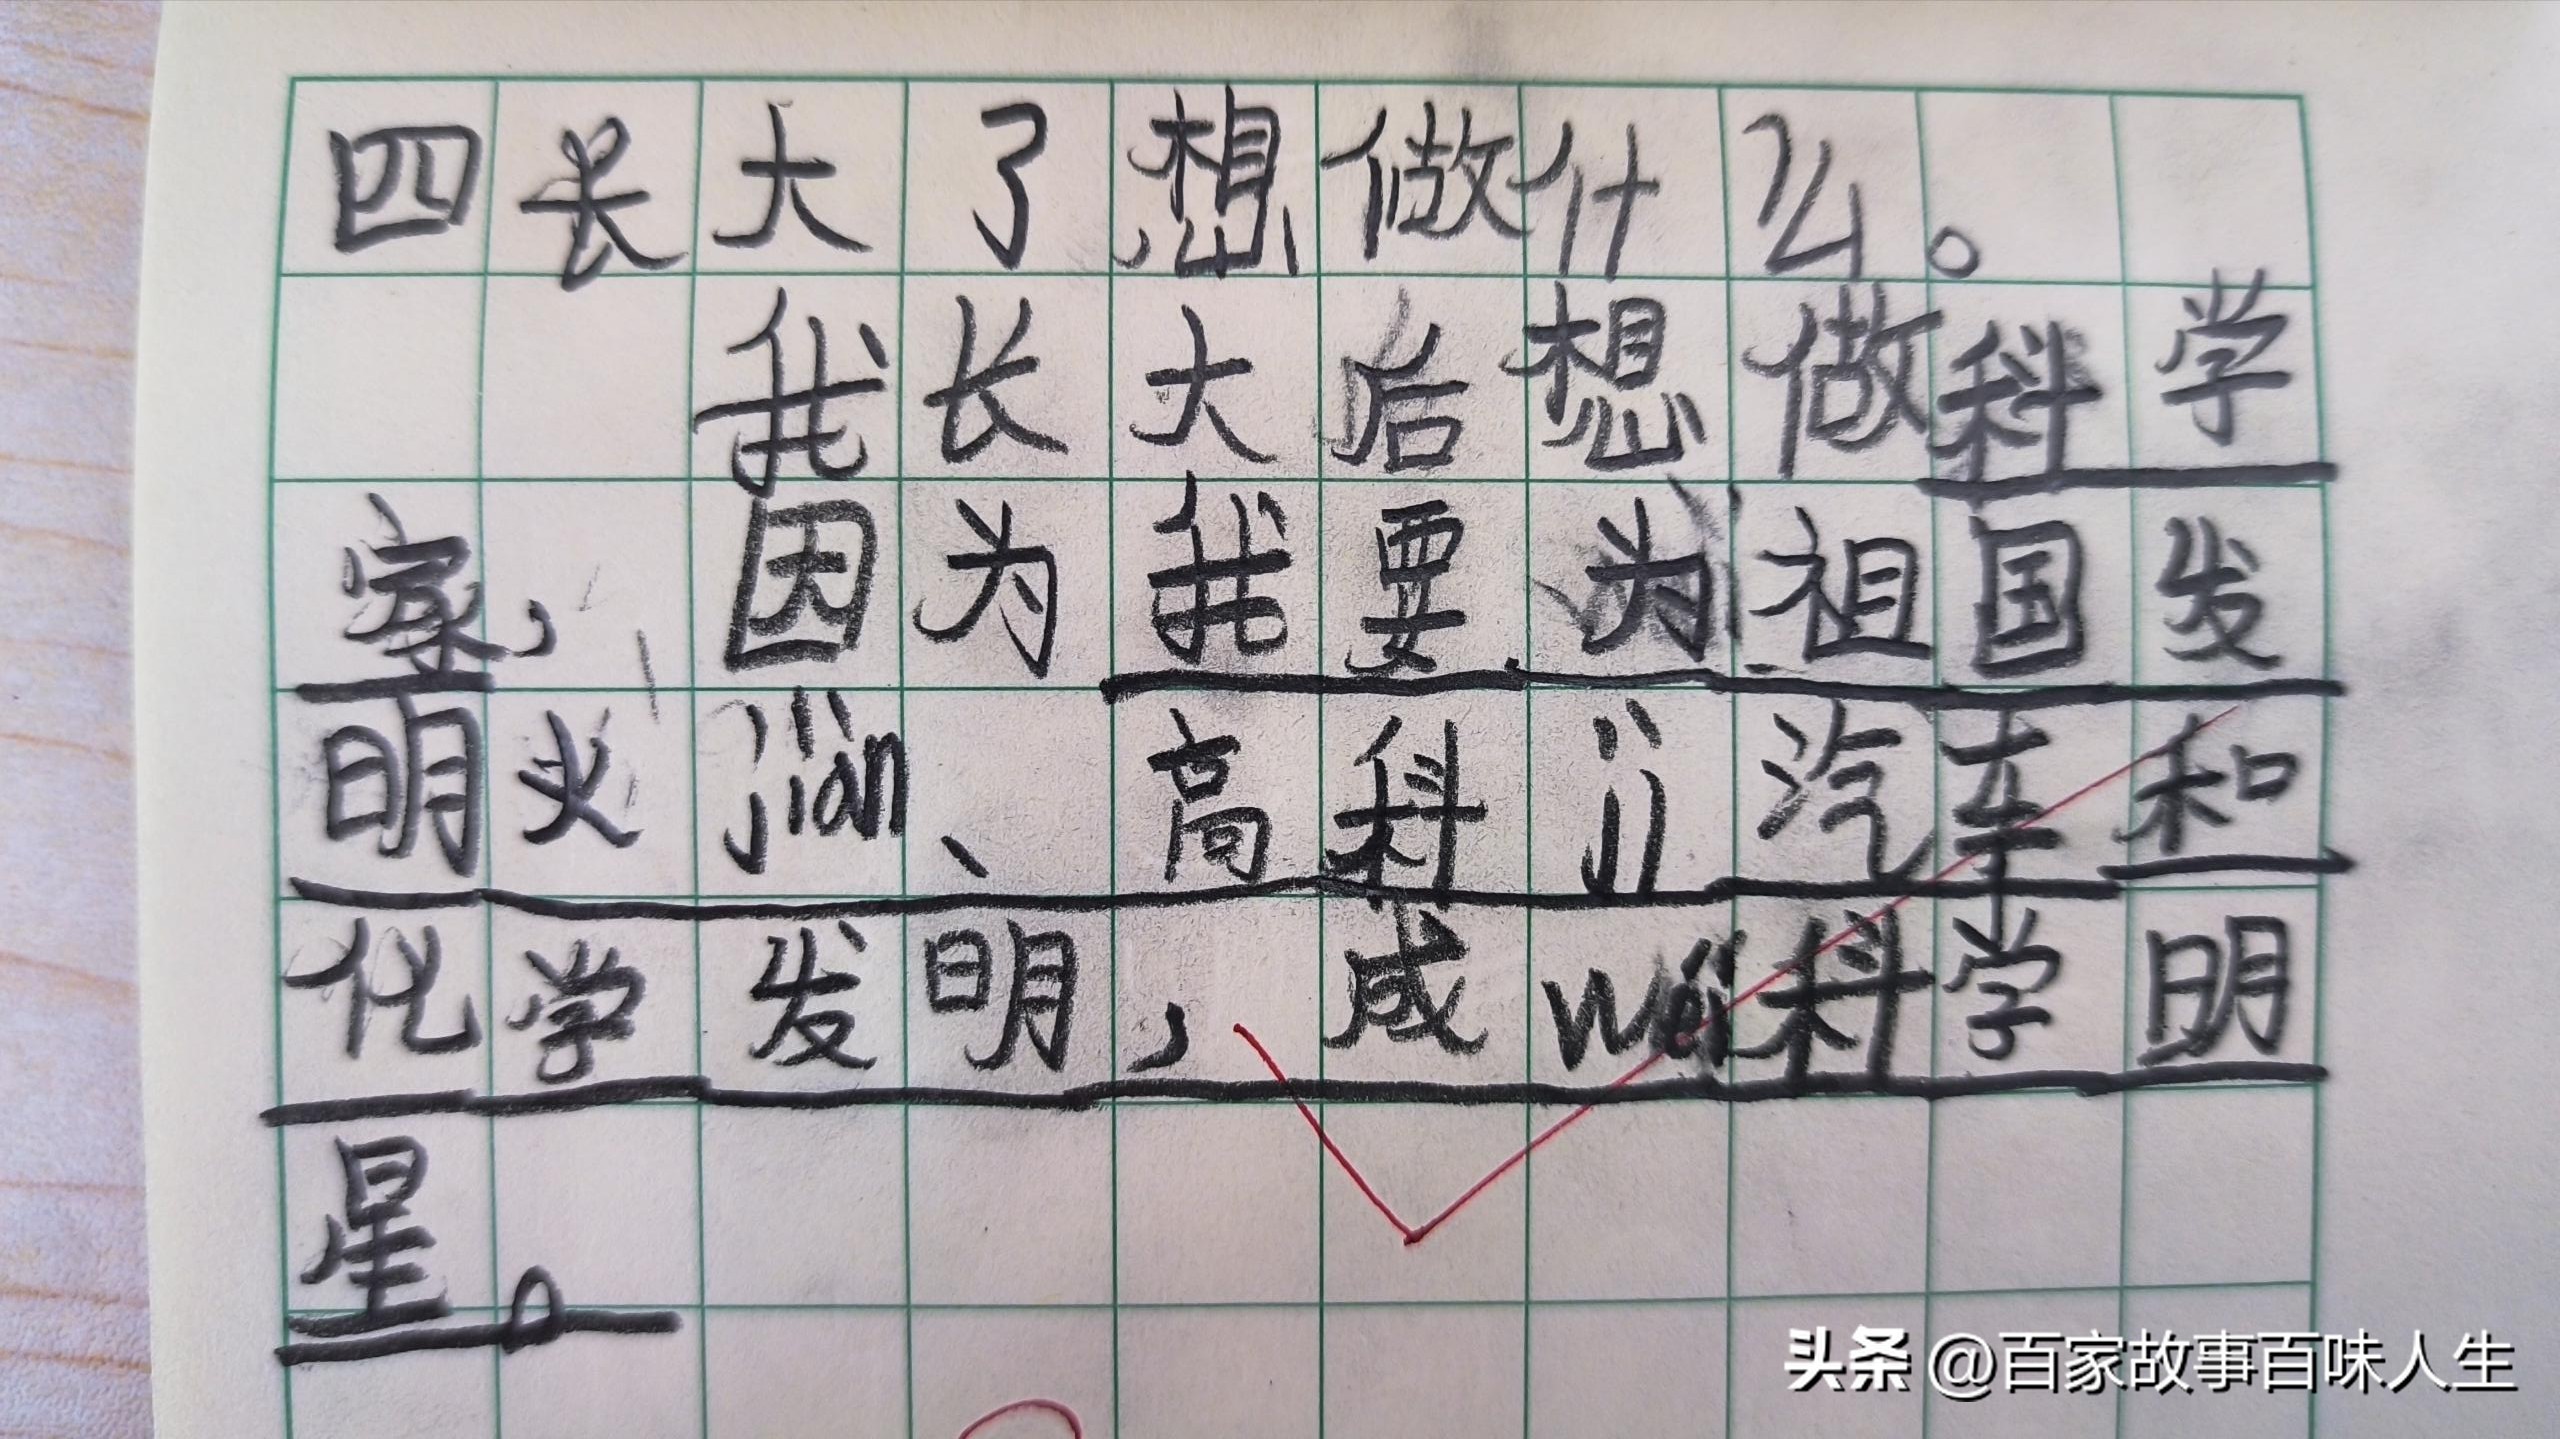 四长大了想做什么。
我长大后想做科学
家，因为我要为祖国发
明火jiàn、高科jì汽车和
化学发明，成wéi科学明
星。
头条 @百家故事百味人生